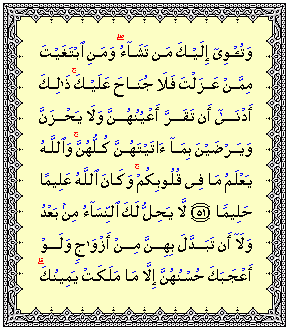 وَتُـْٔوِىٓ إِلَيْكَ مَن تَشَآءُ ۖ وَمَنِ ٱبْتَغَيْتَ
مِمَّنْ عَزَلْتَ فَلَا جُنَاحَ عَلَيْكَ ۚ ذَٰلِكَ
أَدْنَىٰٓ أَن تَقَرَّ أَعْيُنُهُنَّ وَلَا يَحْزَنَّ
وَيَرْضَيْنَ بِمَآ ءَاتَيْتَهُنَّ كُلُّهُنَّ ۚ وَٱللَّهُ
يَعْلَمُ مَا فِى قُلُوبِكُمْ ۚ وَكَانَ ٱللَّهُ عَلِيمًا
حَلِيمًا ۝٥١ لَّا يَحِلُّ لَكَ ٱلنِّسَآءُ مِنۢ بَعْدُ
وَلَآ أَن تَبَدَّلَ بِهِنَّ مِنْ أَزْوَٰجٍ وَلَوْ
أَعْجَبَكَ حُسْنُهُنَّ إِلَّا مَا مَلَكَتْ يَمِينُكَ ۗ